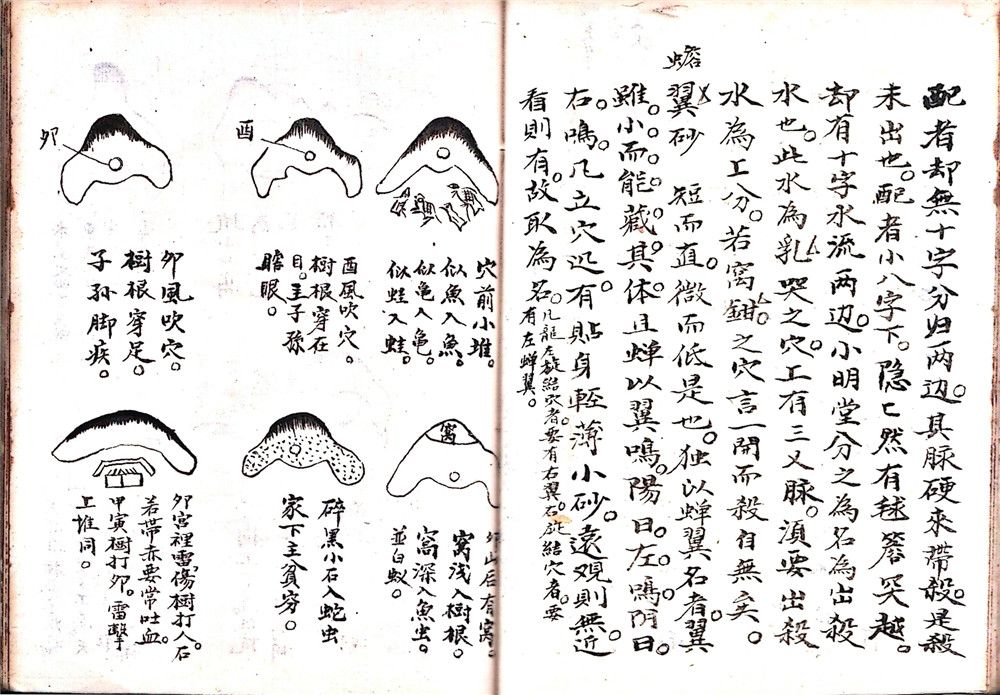 配者却無十字分归两边。其脉硬来帶殺。是殺
未出也。配者小八字下。隐匕然有毬簷突越。
却有十字水流两边。小明堂分之為名為出殺
水也。此水為乳突之穴。工有三叉脉。須要出殺
水為工分。若窩鉗之穴言一開而殺自無矣。
蟾
翼砂 短而直。微而低是也。独以蝉翼名者。翼
雖小而能藏其体。且蝉以翼鳴。陽日左鳴。阴日
右鳴。凡立穴边。有貼身輕薄小砂。遠观則無。近
看則有。故取為名。凡龍左旋結穴者。要有右翼。右旋結穴者。要
有左蝉翼。
穴前小堆。
似魚入魚。
似亀入亀。
似蛙入蛙。
酉
酉風吹穴。
樹根穿在
目。主子孫
瞎眼。
卯
卯風吹穴。
樹根穿足。
子孫脚疾。
窩
后有窩。
窝浅入樹根。
窩深入魚虫。
並白蚁。
碎黑小石入蛇虫
家下主貧穷。
卯宮裡雷傷樹打人。石
若帶赤要常吐血。
甲寅樹打卯。雷擊
工堆同。